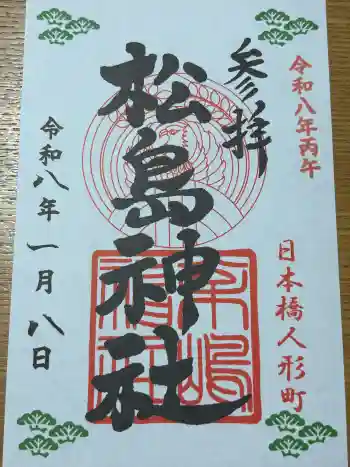 令和八年丙午
日本橋人形町
参拝
松島神社
令和八年一月八日